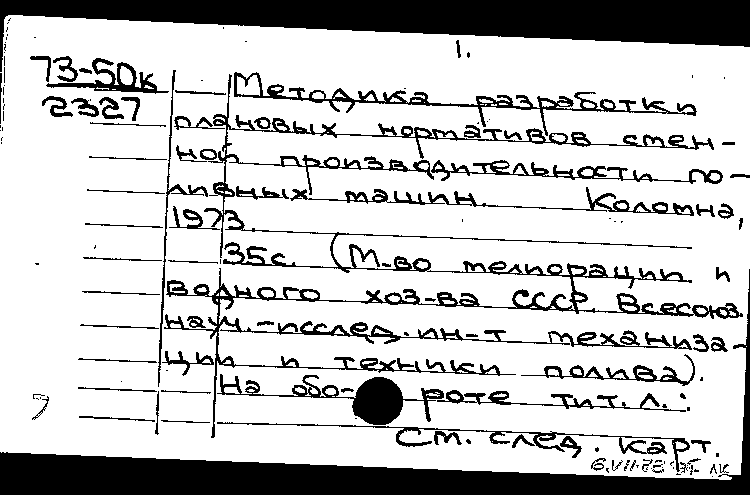 1.
73-50к
2327
Методика разработки
плановых нормативов смен-
ной производительности по-
ливных машин. Коломна,
1973.
35с. (М-во мелиорации и
водного хоз-ва СССР. Всесоюз.
науч.-исслед. ин-т механиза-
ции и техники полива).
На обо- роте тит. л.:
См. след. карт.